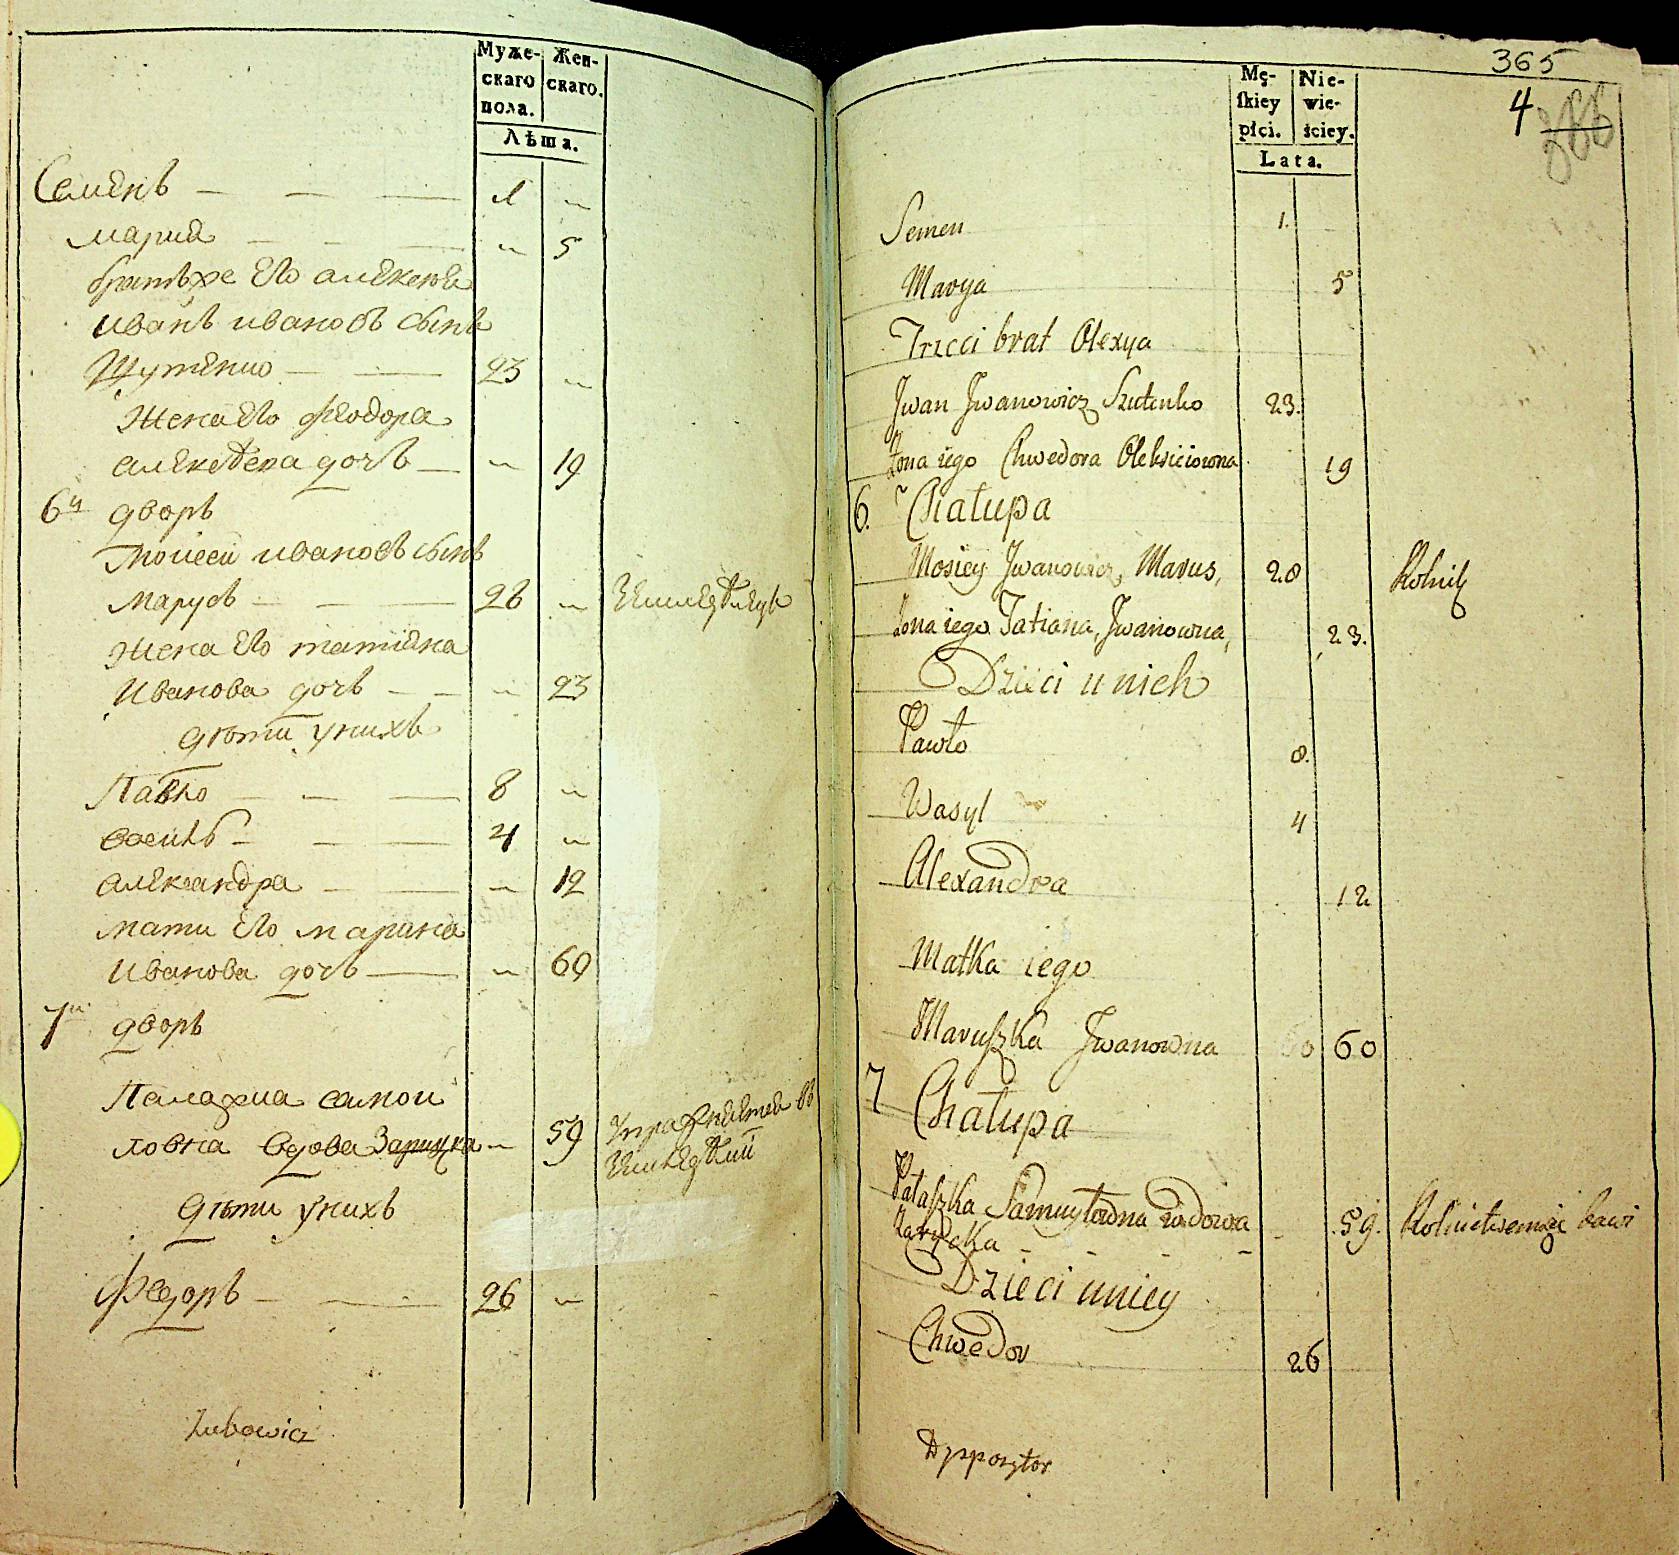 Муже-
скаго
пола.
Жен-
скаго.
Лѣта.
Семенъ — — — 1 "
Мария — — — " 5
братъже его алексея
иванъ ивановъ сынъ
Шутенко — — 23 "
Жена его феодора
алексѣева дочь — " 19
6й дворъ
Моисей ивановъ сынъ
Марусъ — — — 28 "
Жена его татіана
Иванова дочь — — " 23
дѣти унихъ
Павло — — — 8 "
василь — — — 4 "
александра — — " 12
мати его марина
Иванова дочь — " 60
7й дворъ
Палажка самои
ловна вдова Зарицка " 59
дѣти унихъ
Федоръ — — — 26 "
Lubowicz
365
4 366
Mę-
ſkiey
płci.
Nie-
wie-
ściey.
Lata.
Semen 1.
Marya 5
Trzeci brat Olexya
Jwan Jwanowicz Szutenko 23.
Żona iego Chwedora Oleksiciowna 19
6. Chałupa
Mosiey Jwanowicz, Marus, 28 Rolnik
Żona iego Tatiana, Jwanowna, 23.
Dzieci u nich
Pawło 8.
Wasyl 4
Alexandra 12
Matka iego
Maruſzka Jwanowna 60
7 Chałupa
Pałaſzka Samuyłowna wdowa
Zarycka - - - - 59. Rolnictwem się bawi
Dzieci u niey
Chwedor 26
Dyspozytor